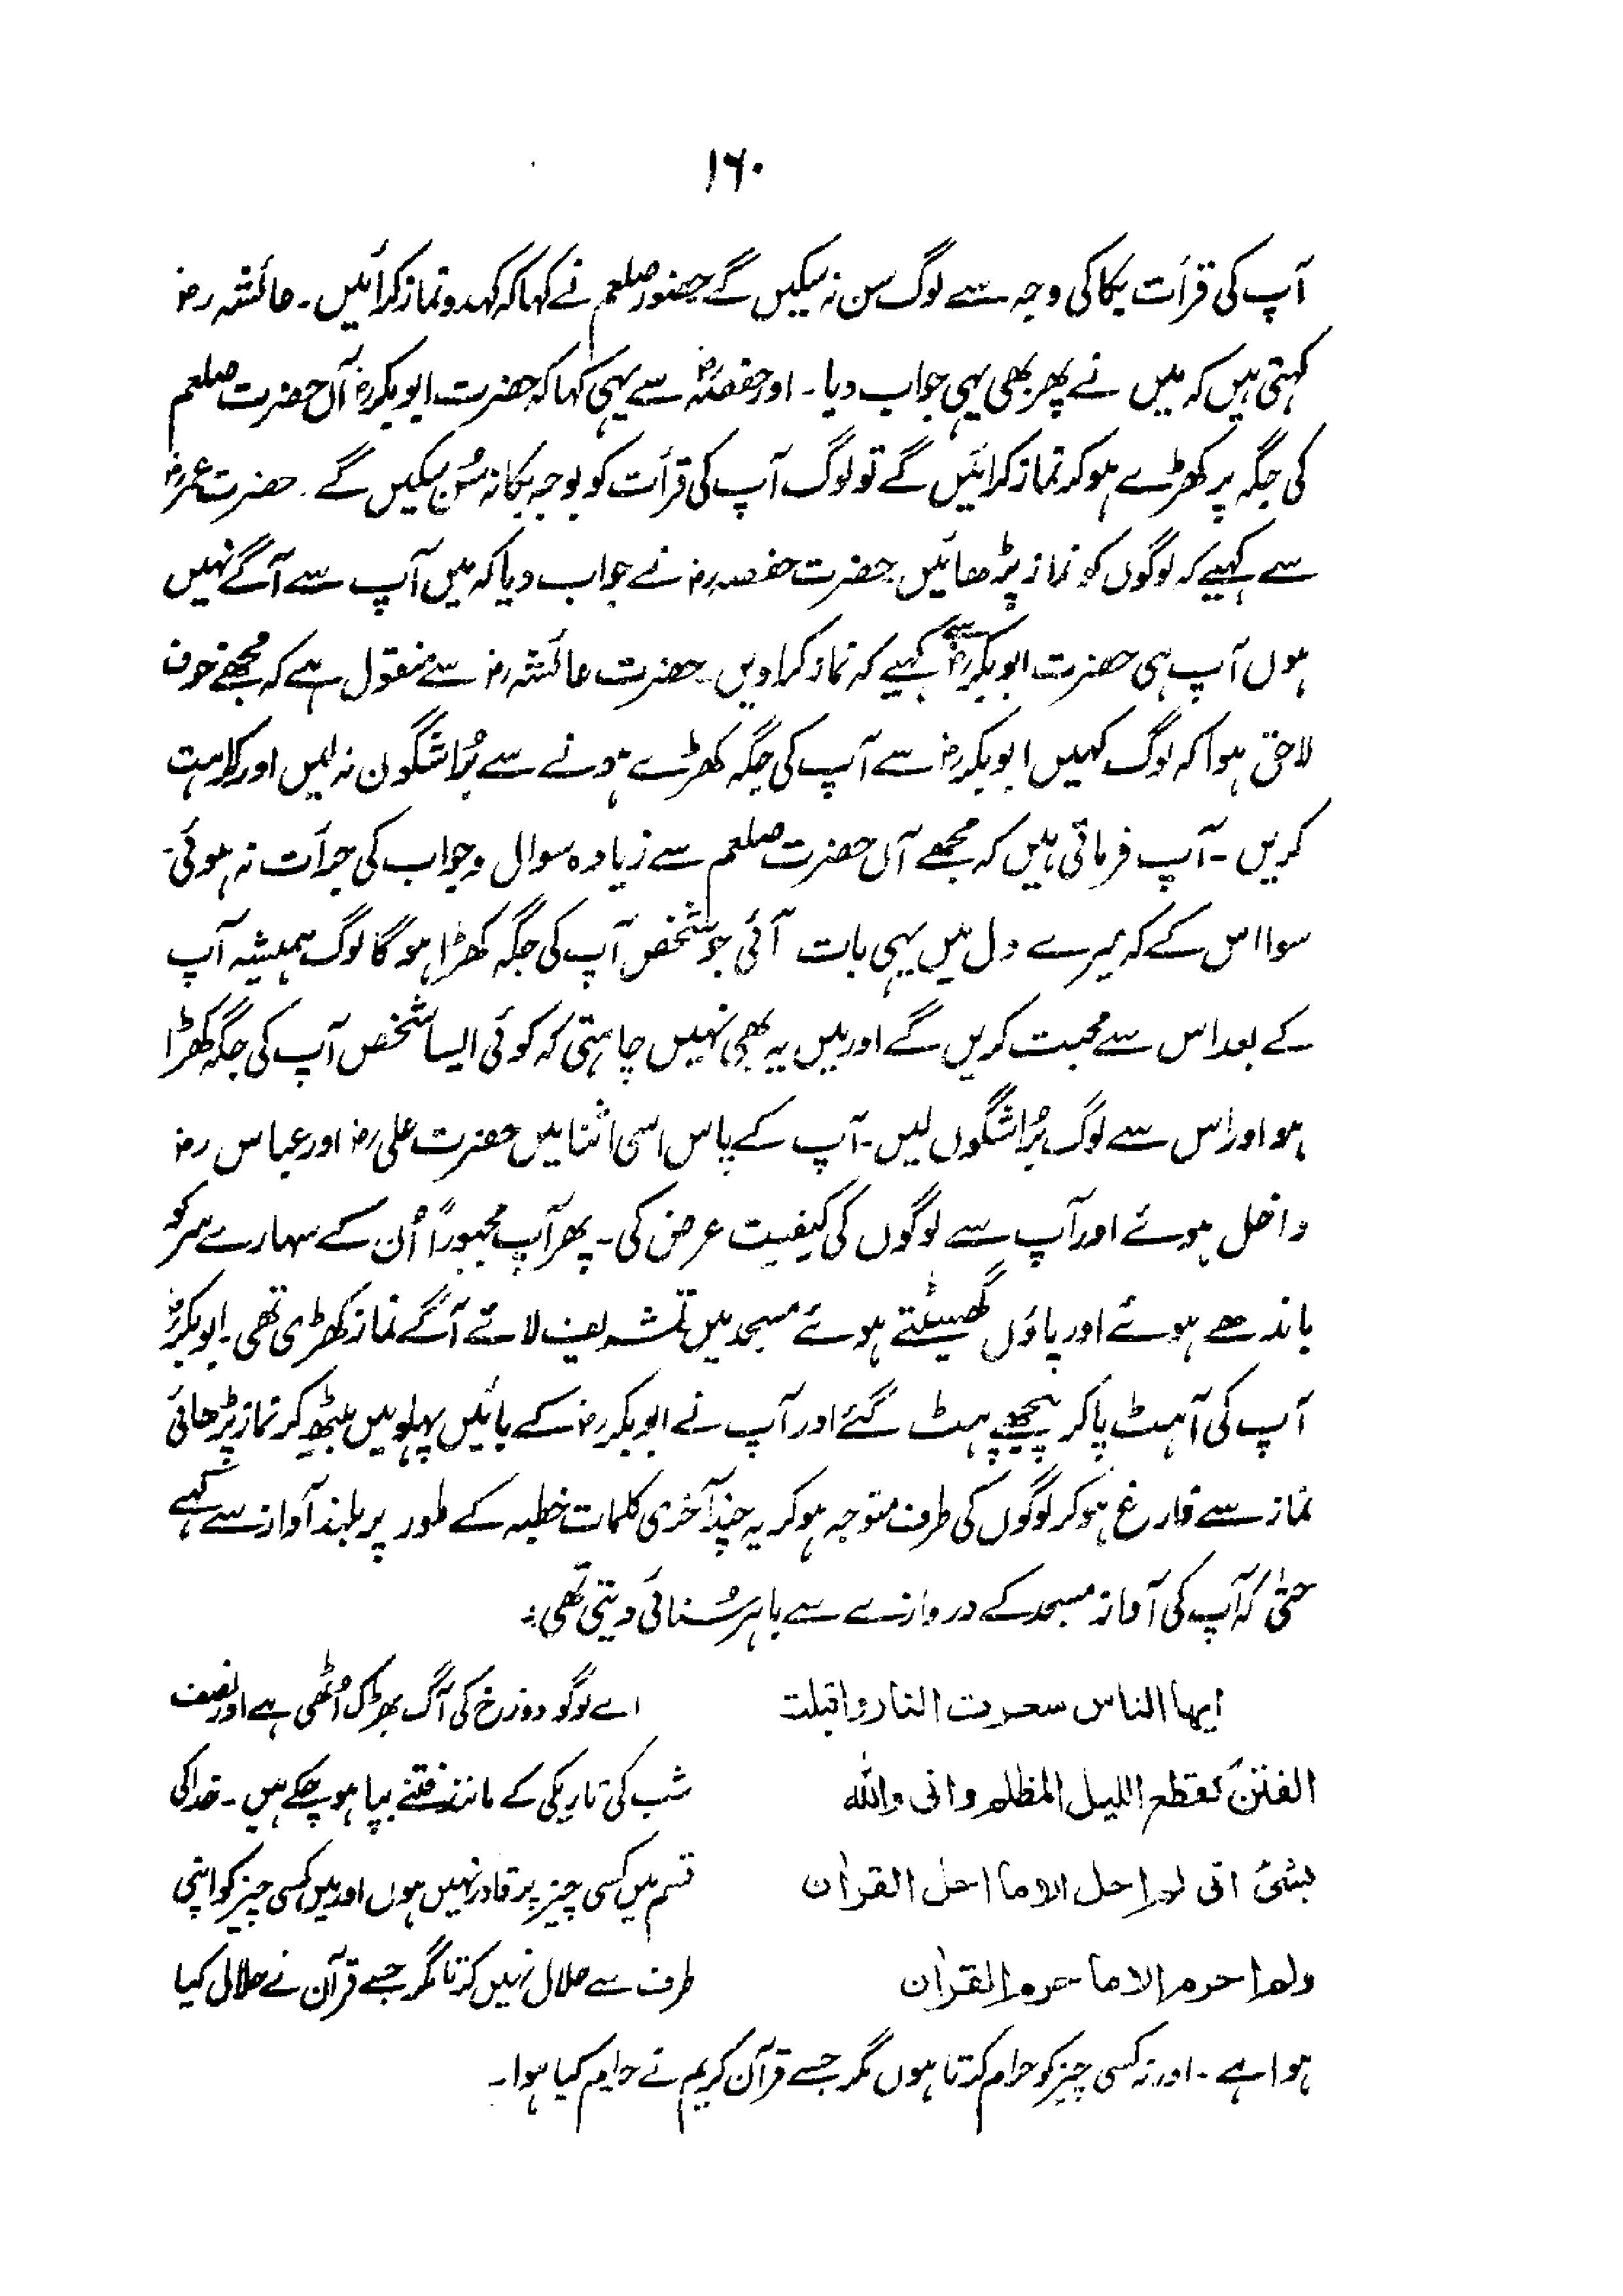 ۱۶۰
آپ کی قرأت بکا کی وجہ سے لوگ سن نہ سکیں گے حضور صلعم نے کہا کہ کہدو نماز کرائیں۔ عائشہ رض
کہتی ہیں کہ میں نے پھر بھی یہی جواب دیا۔ اور حفصہ رض سے یہی کہا کہ حضرت ابوبکر رض آں حضرت صلعم
کی جگہ پر کھڑے ہو کر نماز کرائیں گے تو لوگ آپ کی قرأت کو بوجہ بکا نہ سُن سکیں گے۔ حضرت عمر رض
سے کہیے کہ لوگوں کو نماز پڑھائیں حضرت حفصہ رض نے جواب دیا کہ میں آپ سے آگے نہیں
ہوں آپ ہی حضرت ابوبکر رض سے کہیے کہ نماز کرا دیں۔ حضرت عائشہ رض سے منقول ہے کہ مجھے خوف
لاحق ہوا کہ لوگ کہیں ابوبکر رض سے آپ کی جگہ کھڑے ہونے سے بُرا شگون نہ لیں اور کراہت
کریں۔ آپ فرماتی ہیں کہ مجھے آں حضرت صلعم سے زیادہ سوال و جواب کی جرأت نہ ہوئی۔
سوا اس کے کہ میرے دل میں یہی بات آئی جو شخص آپ کی جگہ کھڑا ہو گا لوگ ہمیشہ آپ
کے بعد اس سے محبت کریں گے اور میں یہ بھی نہیں چاہتی کہ کوئی ایسا شخص آپ کی جگہ کھڑا
ہو اور اس سے لوگ بُرا شگوں لیں۔ آپ کے پاس اسی اثنا میں حضرت علی رض اور عباس رض
داخل ہوئے اور آپ سے لوگوں کی کیفیت عرض کی۔ پھر آپ مجبوراً اُن کے سہارے سر کو
باندھے ہوئے اور پاؤں گھسیٹتے ہوئے مسجد میں تشریف لائے آگے نماز کھڑی تھی۔ ابوبکر رض
آپ کی آہٹ پا کر پیچھے ہٹ گئے اور آپ نے ابوبکر رض کے بائیں پہلو میں بیٹھ کر نماز پڑھائی
نماز سے فارغ ہو کر لوگوں کی طرف متوجہ ہو کر یہ چند آخری کلمات خطبہ کے طور پر بلند آواز سے کہے
حتیٰ کہ آپ کی آواز مسجد کے دروازے سے باہر سُنائی دیتی تھی:
ایھا الناس سعرت النار واقبلت
الفتن کقطع اللیل المظلم وانی واللہ
بشیٔ انی لم احل الا ما احل القرآن
ولم احرم الا ما حرم القرآن
اے لوگو دوزخ کی آگ بھڑک اُٹھی ہے اور نصف
شب کی تاریکی کے مانند فتنے بپا ہو چکے ہیں۔ خدا کی
قسم میں کسی چیز پر قادر نہیں ہوں اور میں کسی چیز کو اپنی
طرف سے حلال نہیں کرتا مگر جسے قرآن نے حلال کیا
ہوا ہے۔ اور نہ کسی چیز کو حرام کرتا ہوں مگر جسے قرآن کریم نے حرام کیا ہوا۔